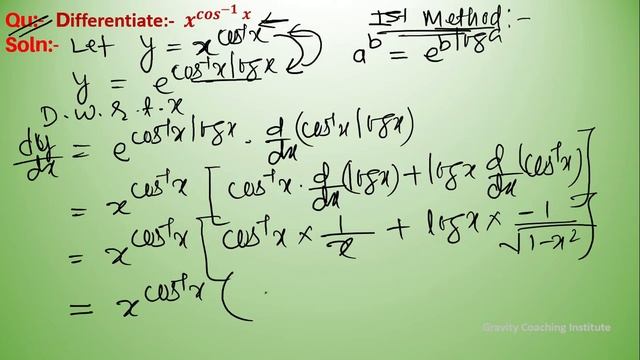 Qu:- Differentiate:- x^cos⁻¹ x
Ist Method:-
Soln:- Let y = x^cos⁻¹x
a^b = e^b log a
y = e^cos⁻¹x log x
D.w.r.t.x
dy/dx = e^cos⁻¹x log x · d/dx (cos⁻¹x log x)
= x^cos⁻¹x [cos⁻¹x · d/dx (log x) + log x d/dx (cos⁻¹x)]
= x^cos⁻¹x [cos⁻¹x × 1/x + log x × -1/√1-x²]
= x^cos⁻¹x (
Gravity Coaching Institute